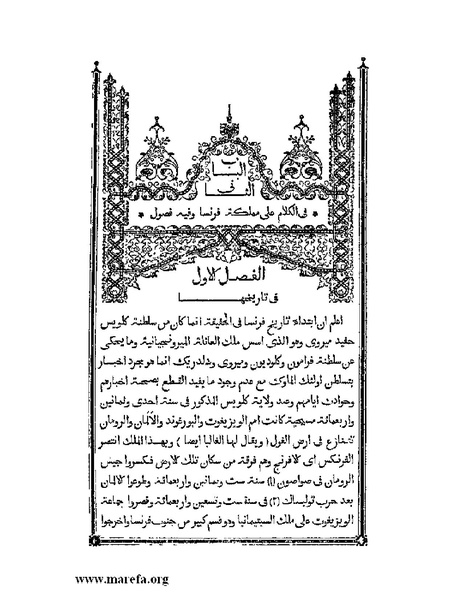 الباب
الثاني
* في الكلام على مملكة فرنسا وفيه فصول *
الفصل الاول
في تاريخها
اعلم ان ابتداء تاريخ فرنسا في الحقيقة انما كان من سلطنة كلويس
حفيد ميروى وهو الذى اسس ملك العائلة الميروفنجيانية وما يحكى
عن سلطنة فرامون وكلوديون وميروى وخلدريك انما هو مجرد اخبار
بتسلطن اولئك الملوك مع عدم وجود ما يفيد القطع بصحة اخبارهم
وحوادث ايامهم وعند ولاية كلويس المذكور فى سنة احدى وثمانين
واربعمائة مسيحية كانت امم الويزيغوت والبورغوند والالمان والرومان
تتنازع فى ارض الغول (ويقال لها الغاليا ايضا) وبهذا الملك انتصر
الفرنكس اى الافرنج وهم فرقة من سكان تلك الارض فكسروا جيش
الرومان فى صواصون (١) سنة ست وثمانين واربعمائة وطوعوا الالمان
بعد حرب تولبياك (٢) فى سنة ست وتسعين واربعمائة وقصروا جماعة
الويزيغوت على ملك السبتيمانيا وهو قسم كبير من جنوب فرنسا واخرجوا
www.marefa.org